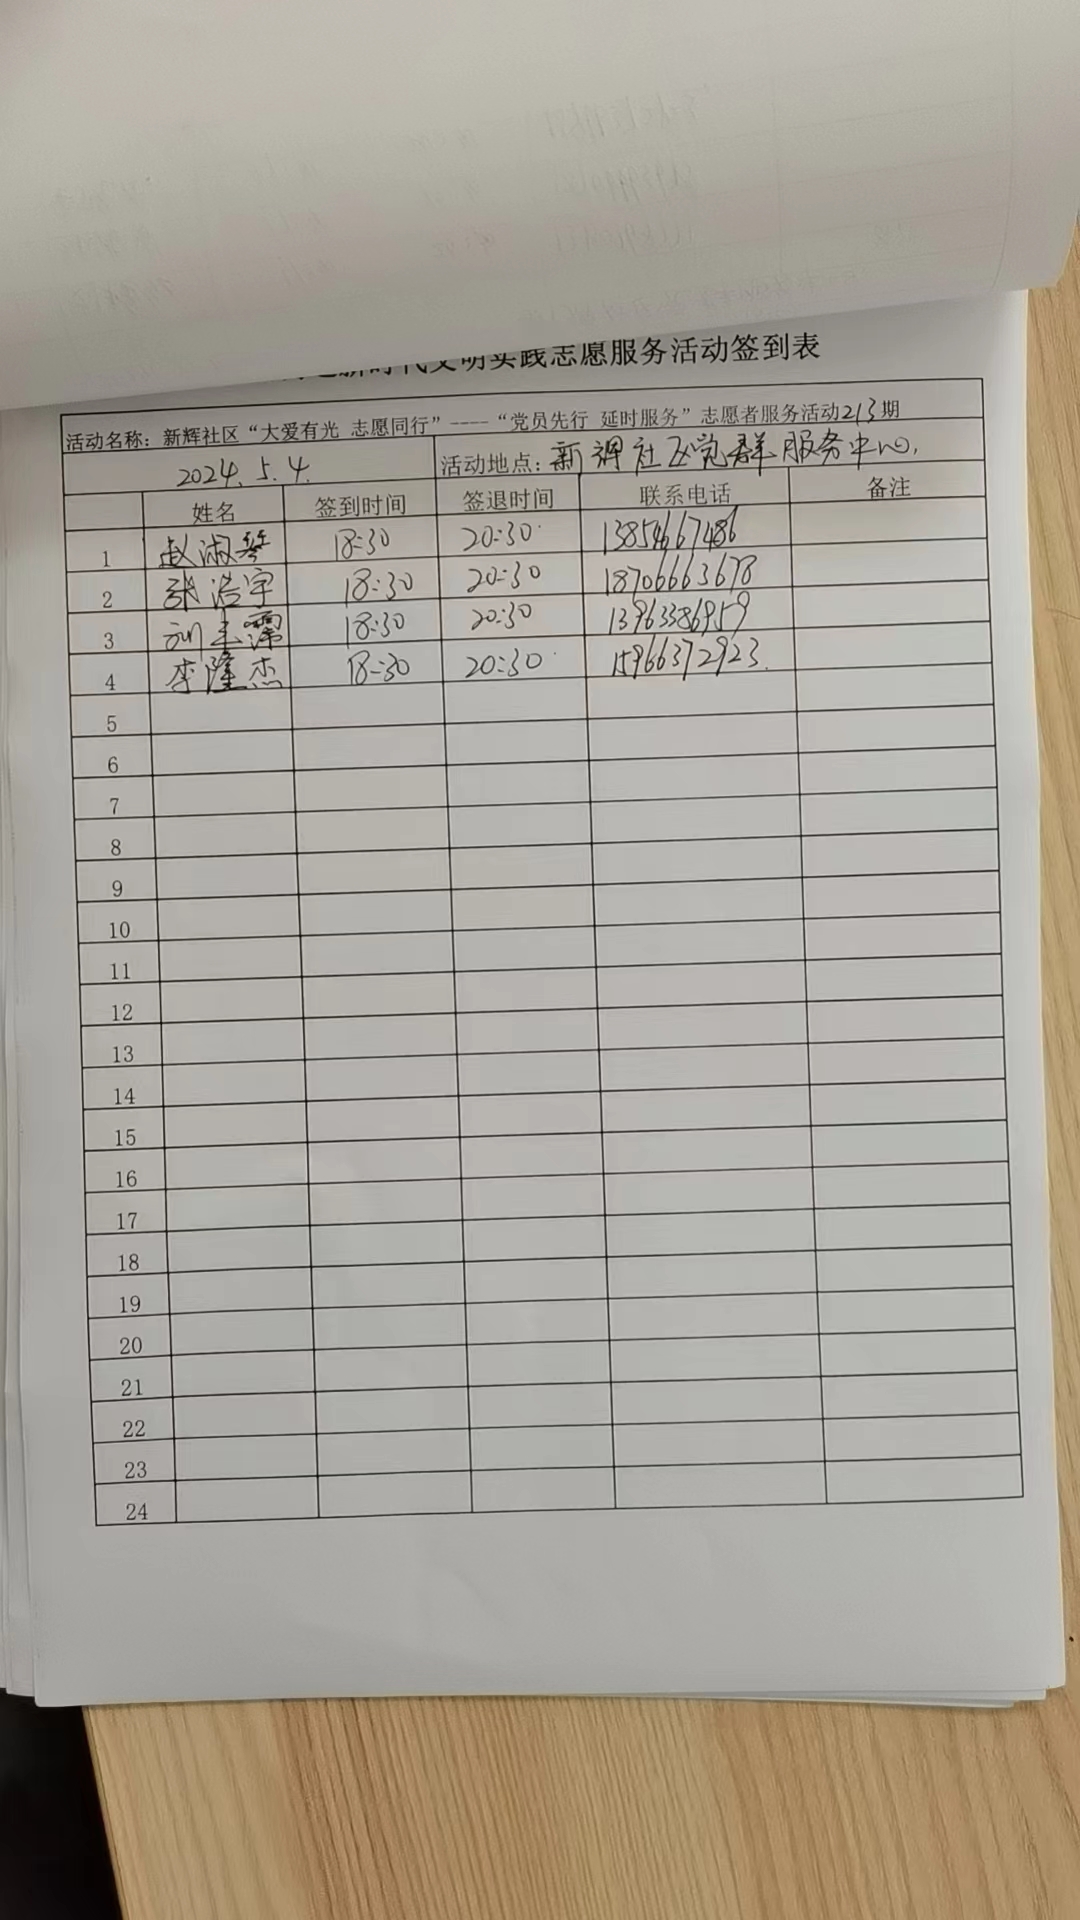 新时代文明实践志愿服务活动签到表
活动名称：新辉社区“大爱有光 志愿同行”----“党员先行 延时服务”志愿者服务活动213期
2024.5.4. 活动地点：新辉社区党群服务中心.
姓名 签到时间 签退时间 联系电话 备注
1 赵淑琴 18:30 20:30 13854667486
2 张浩宇 18:30 20:30 18706663678
3 刘玉霈 18:30 20:30 13963386959
4 李隆杰 18:30 20:30 15966372923.
5
6
7
8
9
10
11
12
13
14
15
16
17
18
19
20
21
22
23
24